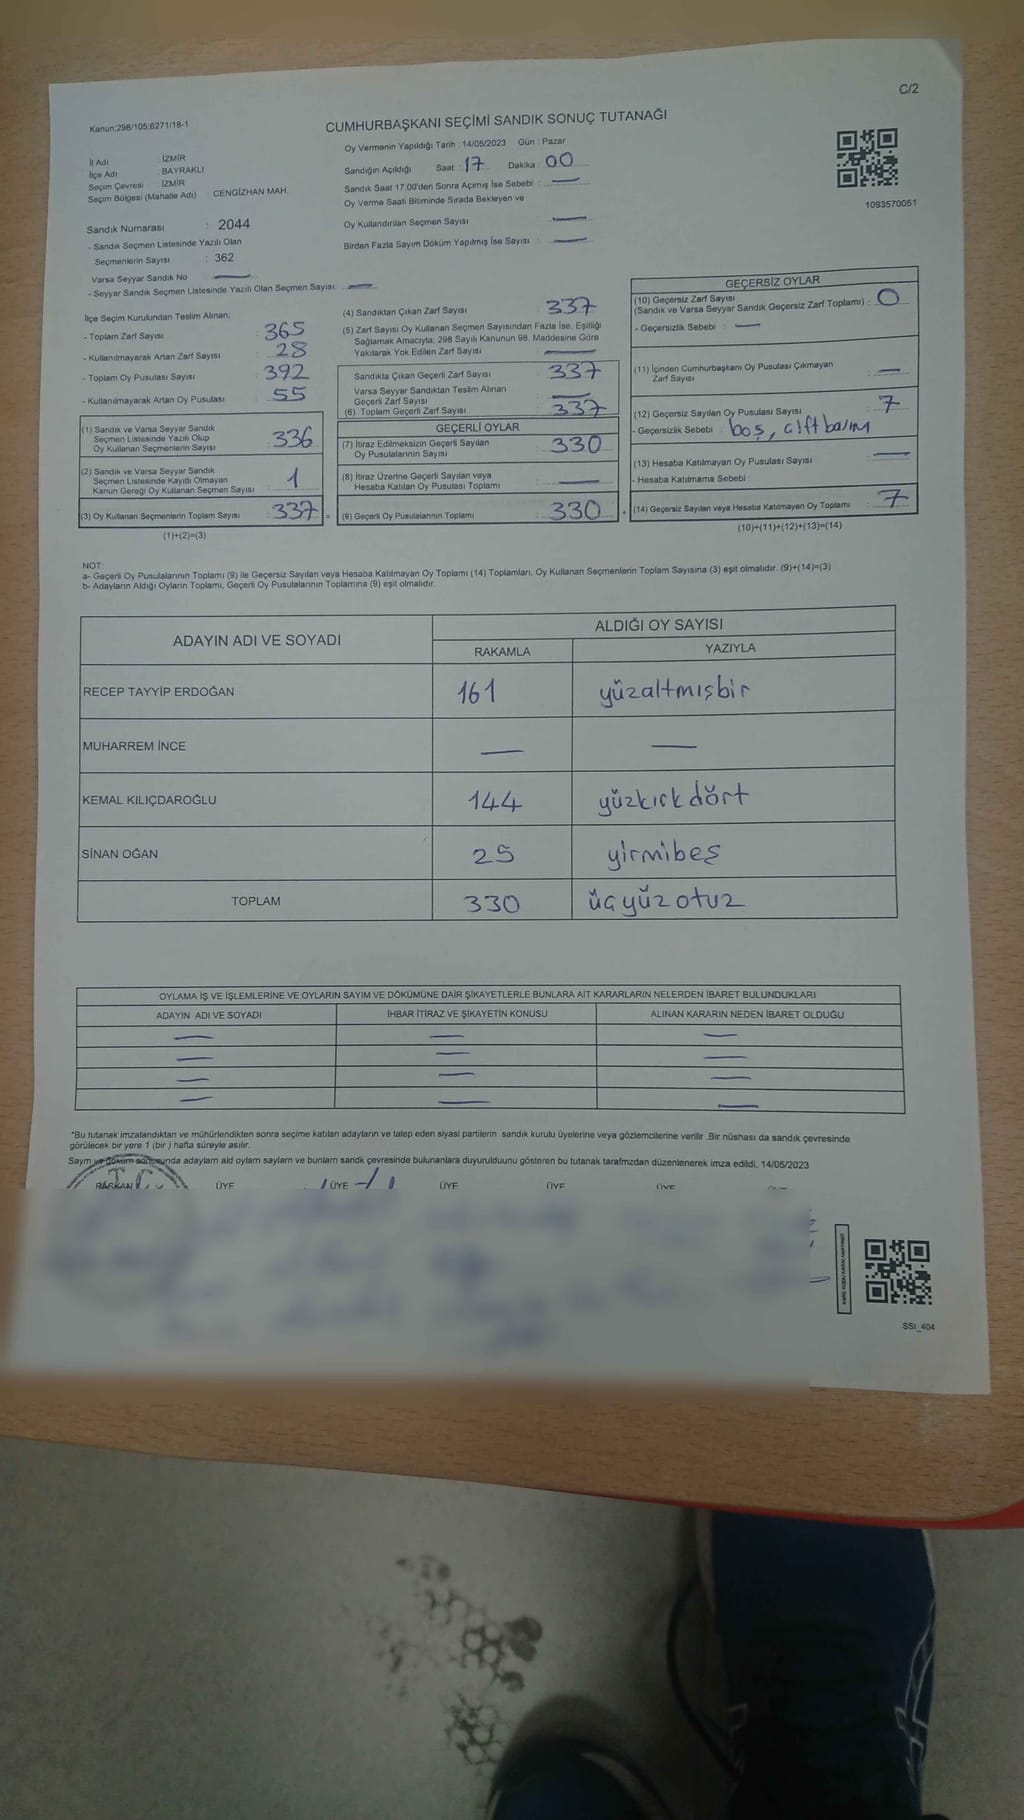 C/2
Kanun;298/105;6271/18-1
CUMHURBAŞKANI SEÇİMİ SANDIK SONUÇ TUTANAĞI
İl Adı : İZMİR
İlçe Adı : BAYRAKLI
Seçim Çevresi : İZMİR
Seçim Bölgesi (Mahalle Adı) : CENGİZHAN MAH.
Sandık Numarası : 2044
- Sandık Seçmen Listesinde Yazılı Olan
Seçmenlerin Sayısı : 362
Varsa Seyyar Sandık No : —
- Seyyar Sandık Seçmen Listesinde Yazılı Olan Seçmen Sayısı: —
Oy Vermenin Yapıldığı Tarih : 14/05/2023 Gün : Pazar
Sandığın Açıldığı Saat : 17 Dakika : 00
Sandık Saat 17:00'den Sonra Açımış İse Sebebi : —
Oy Verme Saati Bitiminde Sırada Bekleyen ve
Oy Kullandırılan Seçmen Sayısı : —
Birden Fazla Sayım Döküm Yapılmış İse Sayısı : —
1093570051
İlçe Seçim Kurulundan Teslim Alınan;
- Toplam Zarf Sayısı : 365
- Kullanılmayarak Artan Zarf Sayısı : 28
- Toplam Oy Pusulası Sayısı : 392
- Kullanılmayarak Artan Oy Pusulası : 55
(1) Sandık ve Varsa Seyyar Sandık
Seçmen Listesinde Yazılı Olup
Oy Kullanan Seçmenlerin Sayısı : 336
(2) Sandık ve Varsa Seyyar Sandık
Seçmen Listesinde Kayıtlı Olmayan
Kanun Gereği Oy Kullanan Seçmen Sayısı : 1
(3) Oy Kullanan Seçmenlerin Toplam Sayısı : 337 =
(1)+(2)=(3)
(4) Sandıktan Çıkan Zarf Sayısı : 337
(5) Zarf Sayısı Oy Kullanan Seçmen Sayısından Fazla İse, Eşitliği
Sağlamak Amacıyla; 298 Sayılı Kanunun 98. Maddesine Göre
Yakılarak Yok Edilen Zarf Sayısı : —
Sandıkta Çıkan Geçerli Zarf Sayısı : 337
Varsa Seyyar Sandıktan Teslim Alınan
Geçerli Zarf Sayısı : —
(6) Toplam Geçerli Zarf Sayısı : 337
GEÇERLİ OYLAR
(7) İtiraz Edilmeksizin Geçerli Sayılan
Oy Pusulalarının Sayısı : 330
(8) İtiraz Üzerine Geçerli Sayılan veya
Hesaba Katılan Oy Pusulası Toplamı : —
(9) Geçerli Oy Pusulalarının Toplamı : 330 +
GEÇERSİZ OYLAR
(10) Geçersiz Zarf Sayısı
(Sandık ve Varsa Seyyar Sandık Geçersiz Zarf Toplamı) : 0
- Geçersizlik Sebebi : —
(11) İçinden Cumhurbaşkanı Oy Pusulası Çıkmayan
Zarf Sayısı : —
(12) Geçersiz Sayılan Oy Pusulası Sayısı : 7
- Geçersizlik Sebebi : boş, çift basım
(13) Hesaba Katılmayan Oy Pusulası Sayısı : —
- Hesaba Katılmama Sebebi :
(14) Geçersiz Sayılan veya Hesaba Katılmayan Oy Toplamı : 7
(10)+(11)+(12)+(13)=(14)
NOT:
a- Geçerli Oy Pusulalarının Toplamı (9) ile Geçersiz Sayılan veya Hesaba Katılmayan Oy Toplamı (14) Toplamları, Oy Kullanan Seçmenlerin Toplam Sayısına (3) eşit olmalıdır. (9)+(14)=(3)
b- Adayların Aldığı Oyların Toplamı, Geçerli Oy Pusulalarının Toplamına (9) eşit olmalıdır.
ADAYIN ADI VE SOYADI ALDIĞI OY SAYISI
RAKAMLA YAZIYLA
RECEP TAYYİP ERDOĞAN 161 yüzaltmışbir
MUHARREM İNCE — —
KEMAL KILIÇDAROĞLU 144 yüzkırkdört
SİNAN OĞAN 25 yirmibeş
TOPLAM 330 üçyüzotuz
OYLAMA İŞ VE İŞLEMLERİNE VE OYLARIN SAYIM VE DÖKÜMÜNE DAİR ŞİKAYETLERLE BUNLARA AİT KARARLARIN NELERDEN İBARET BULUNDUKLARI
ADAYIN ADI VE SOYADI İHBAR İTİRAZ VE ŞİKAYETİN KONUSU ALINAN KARARIN NEDEN İBARET OLDUĞU
— — —
— — —
— — —
— — —
*Bu tutanak imzalandıktan ve mühürlendikten sonra seçime katılan adayların ve talep eden siyasi partilerin sandık kurulu üyelerine veya gözlemcilerine verilir .Bir nüshası da sandık çevresinde
görülecek bir yere 1 (bir ) hafta süreyle asılır.
Sayım ve döküm sonuçunda adayların ald oyların sayların ve bunların sandk çevresinde bulunanlara duyurulduunu gösteren bu tutanak tarafmzdan düzenlenerek imza edildi, 14/05/2023
BAŞKAN ÜYE ÜYE ÜYE ÜYE ÜYE
SSI_404